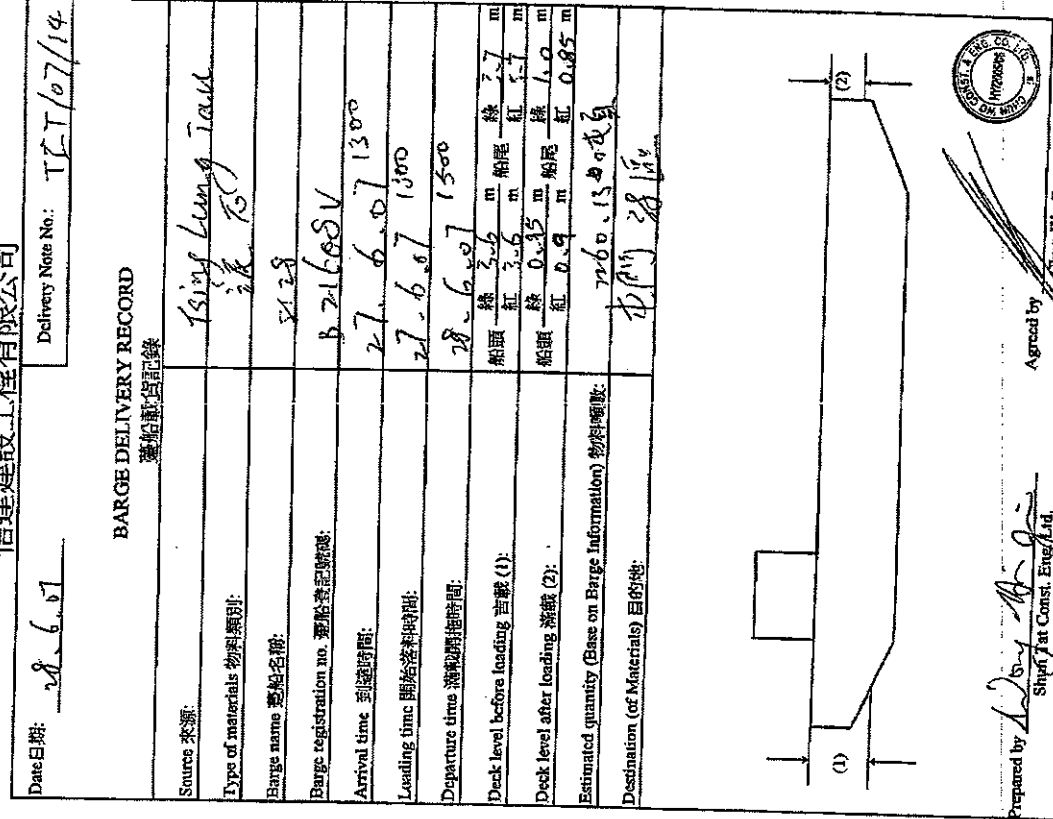 信達建設工程有限公司
Date日期: 28.6.07
Delivery Note No.: TLT/07/14
BARGE DELIVERY RECORD
躉船載貨記錄
Source 來源: Tsing Lung Tau
Type of materials 物料類別:
Barge name 躉船名稱:
Barge registration no. 躉船登記號碼: B21608V
Arrival time 到達時間: 27.6.07 1300
Loading time 開始落料時間: 27.6.07 1300
Departure time 滿載開拖時間: 28.6.07 1500
Deck level before loading 吉載 (1): 船頭 綠 3.6 m 船尾 綠 3.7 m
紅 3.6 m 紅 3.7 m
Deck level after loading 滿載 (2): 船頭 綠 0.95 m 船尾 綠 1.0 m
紅 0.9 m 紅 0.85 m
Estimated quantity (Base on Barge Information) 物料噸數:
Destination (of Materials) 目的地:
(1)
(2)
CHUN WO CONST. & ENG. CO. LTD.
Prepared by
Shun Tat Const. Eng. Ltd.
Agreed by